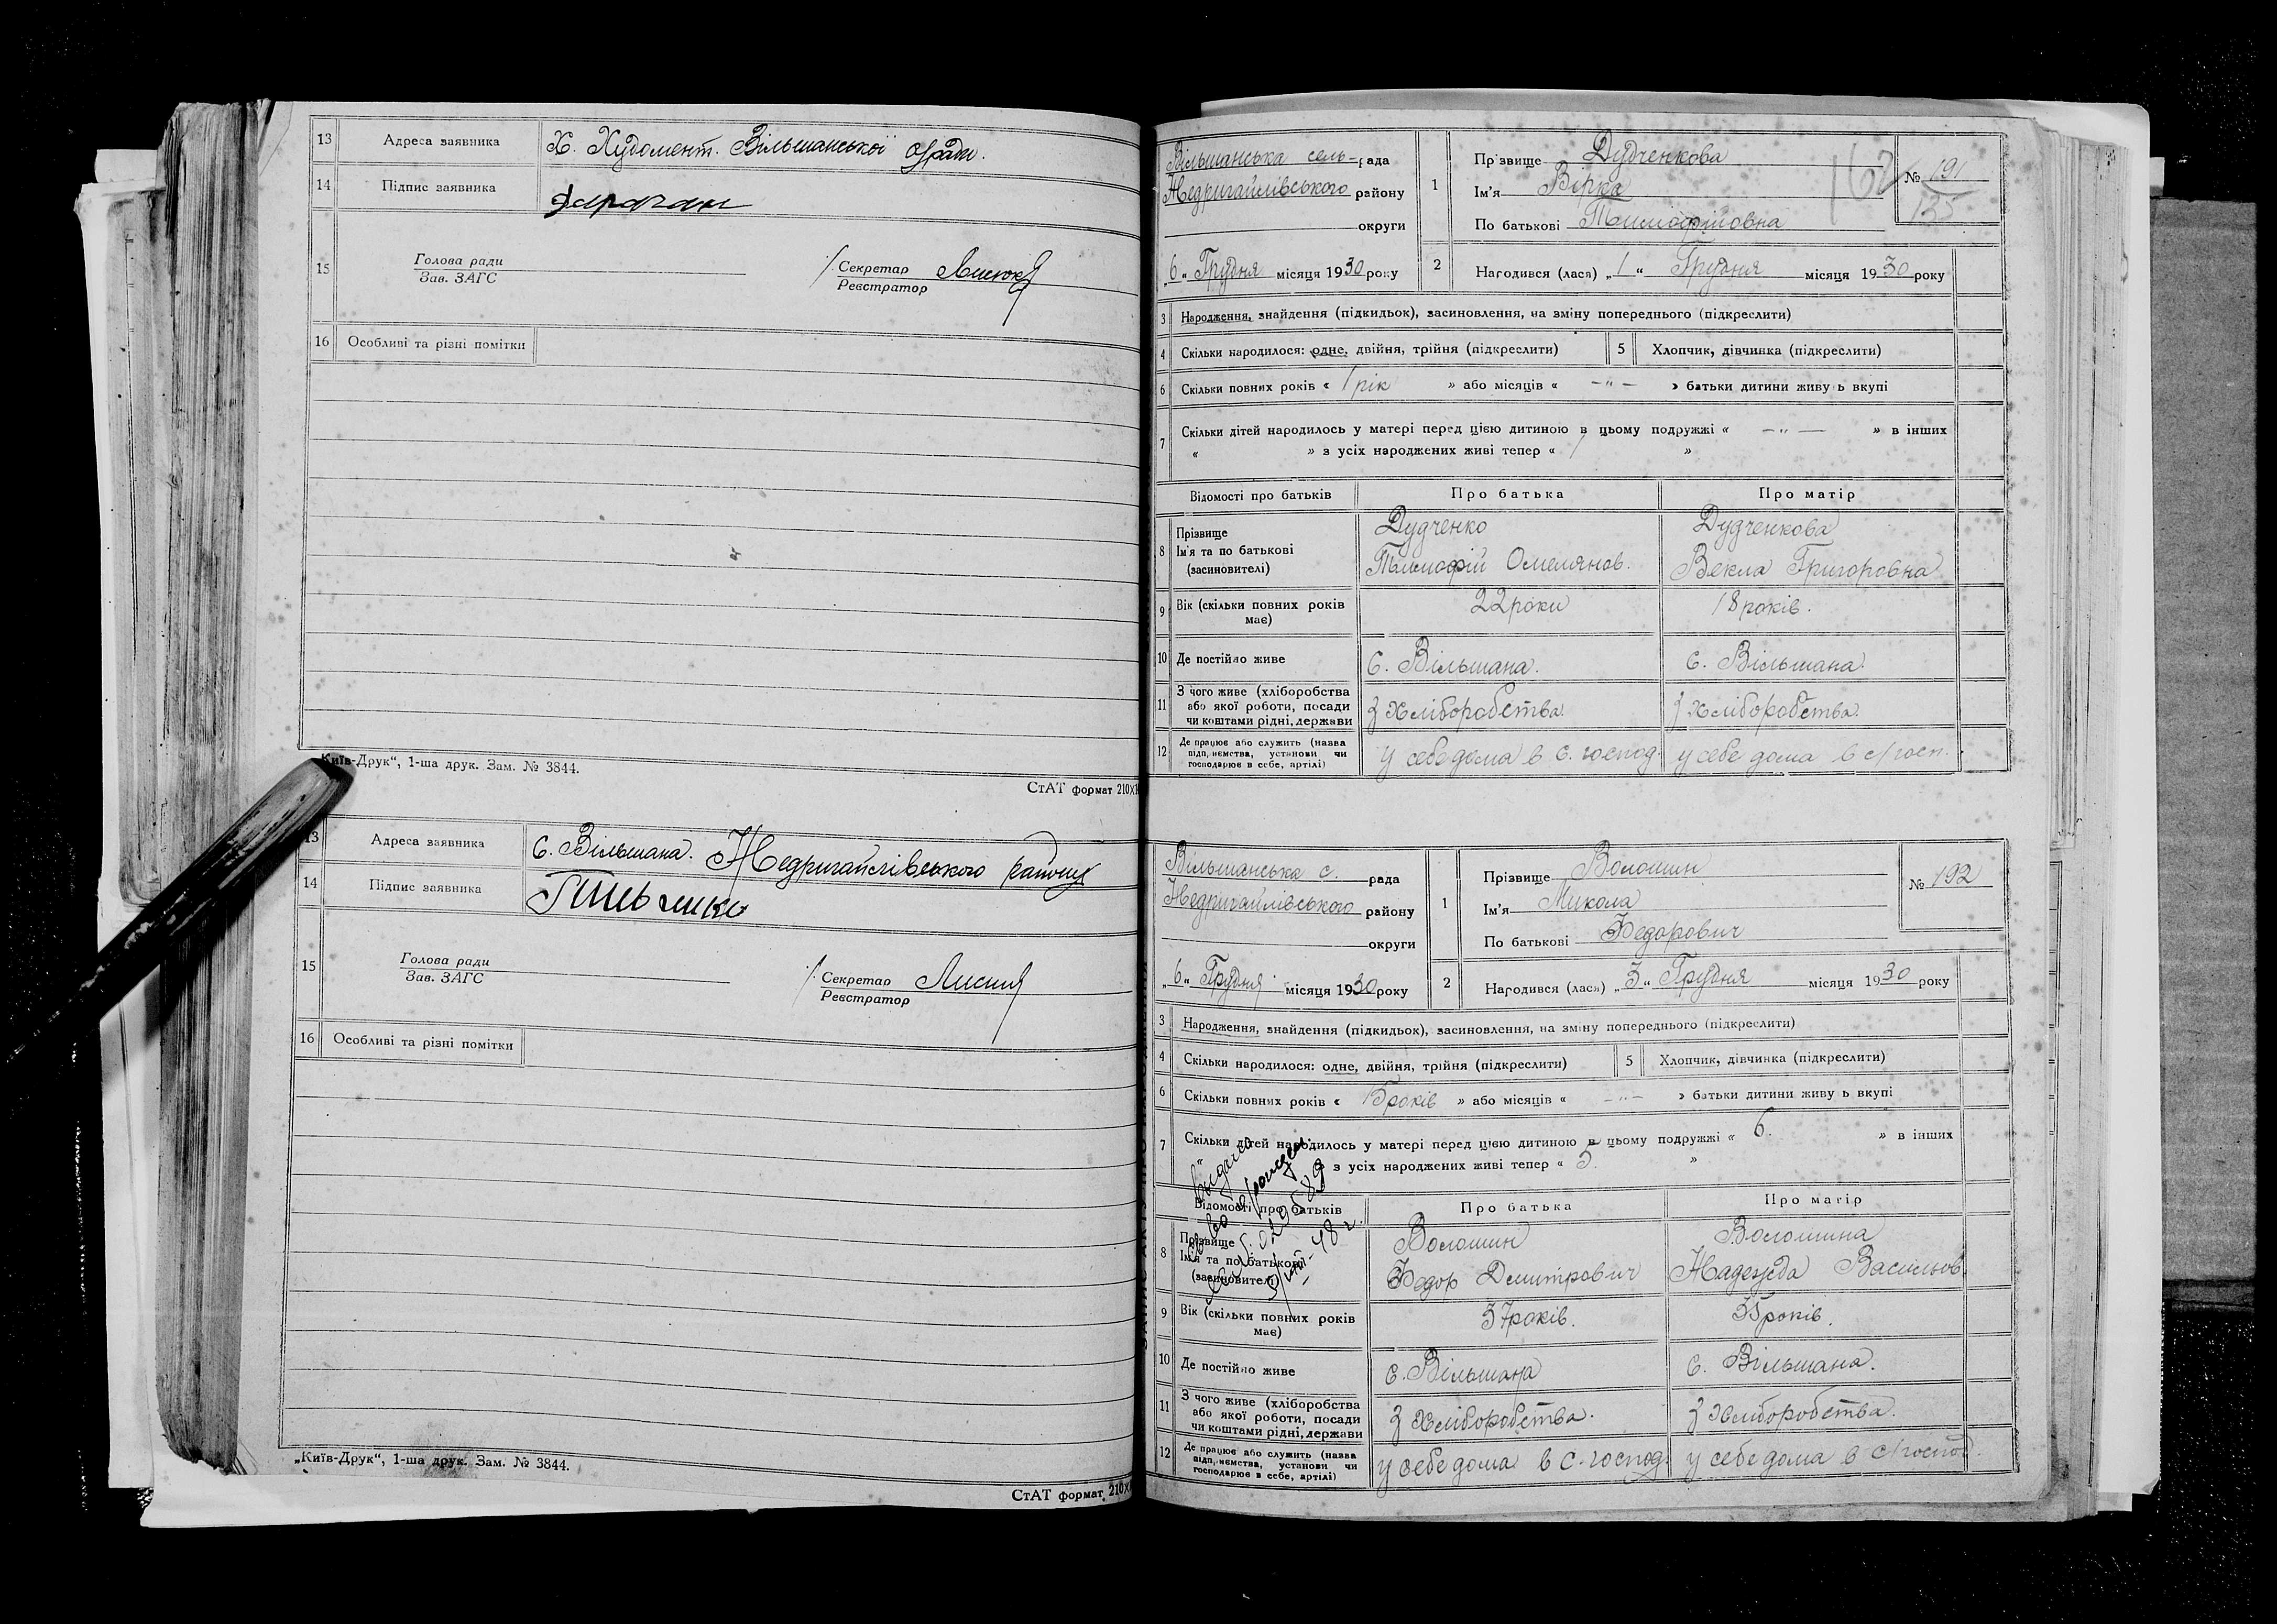 13 Адреса заявника Х. Худомент. Вільшанської с/ради.
14 Підпис заявника
15 Голова ради
Зав. ЗАГС
Секретар
Реєстратор
16 Особливі та різні помітки
Київ-Друк“, 1-ша друк. Зам. № 3844.
СтАТ формат 210×1
13 Адреса заявника С. Вільшана. Недригайлівського району
14 Підпис заявника
15 Голова ради
Зав. ЗАГС
Секретар
Реєстратор
16 Особливі та різні помітки
„Київ-Друк“, 1-ша друк. Зам. № 3844.
СтАТ формат 210×
Вільшанська сель-рада
Недригайлівського району
округи
„6„ Грудня місяця 1930 року
1 Прізвище Дудченкова
Ім'я Вірка
По батькові Тимофійовна
162 № 191
135
2 Народився (лася) „1“ Грудня місяця 1930 року
3 Народження, знайдення (підкидьок), засиновлення, на зміну попереднього (підкреслити)
4 Скільки народилося: одне, двійня, трійня (підкреслити) 5 Хлопчик, дівчинка (підкреслити)
6 Скільки повних років « 1 рік » або місяців « –"– » батьки дитини живуь вкупі
7 Скільки дітей народилось у матері перед цією дитиною в цьому подружжі « –"– » в інших
« » з усіх народжених живі тепер « 1 »
Відомості про батьків Про батька Про матір
8 Прізвище Дудченко Дудченкова
Ім'я та по батькові
(засиновителі) Тимофій Омелянов. Векла Григоровна
9 Вік (скільки повних років має) 22 роки 18 років.
10 Де постійно живе С. Вільшана. С. Вільшана.
11 З чого живе (хліборобства
або якої роботи, посади
чи коштами рідні, держави з хліборобства. з хліборобства.
12 Де працює або служить (назва
підп,иємства, установи чи
господарює в себе, артілі) у себе дома в с. господ. у себе дома в с/госп.
Вільшанська с. рада
Недригайлівського району
округи
„6„ Грудня місяця 1930 року
1 Прізвище Волошин
Ім'я Микола
По батькові Федорович
№ 192
2 Народився (лася) „3„ Грудня місяця 1930 року
3 Народження, знайдення (підкидьок), засиновлення, на зміну попереднього (підкреслити)
4 Скільки народилося: одне, двійня, трійня (підкреслити) 5 Хлопчик, дівчинка (підкреслити)
6 Скільки повних років « 15 років » або місяців « –"– » батьки дитини живуь вкупі
7 Скільки дітей народилось у матері перед цією дитиною в цьому подружжі « 6. » в інших
» з усіх народжених живі тепер « 5. »
Відомості про батьків Про батька Про матір
8 Прізвище Волошин Волошина
Ім'я та по батькові
(засиновителі) Федор Дмитрович Надежда Васильов.
9 Вік (скільки повних років має) 37 років. 35 років.
10 Де постійно живе С. Вільшана С. Вільшана.
11 З чого живе (хліборобства
або якої роботи, посади
чи коштами рідні, держави з хліборобства. з хліборобства.
12 Де працює або служить (назва
підп,иємства, установи чи
господарює в себе, артілі) у себе дома в с. господ. у себе дома в с/господ.